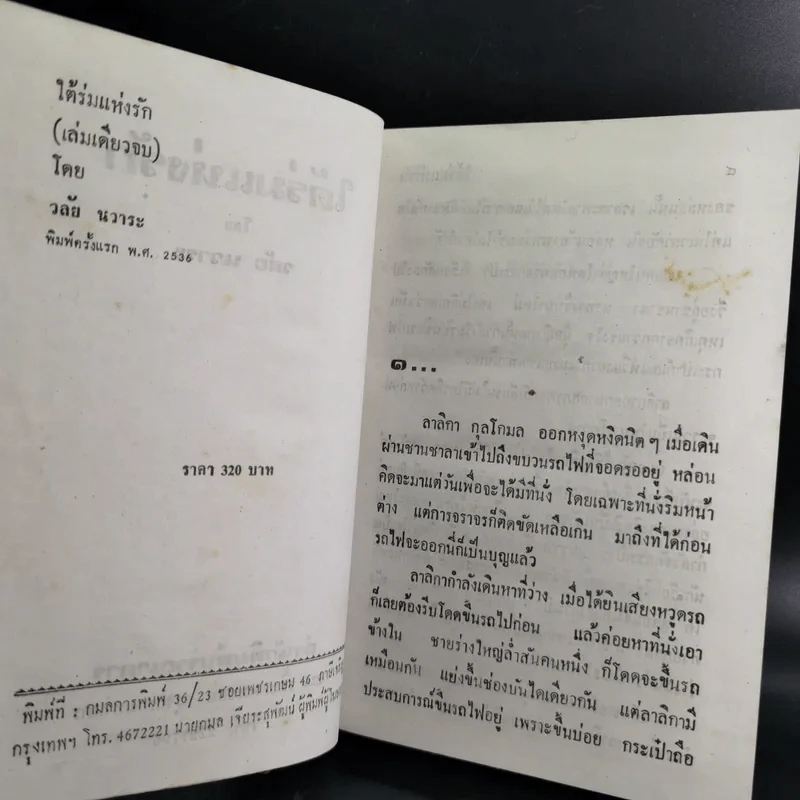 ใต้ร่มแห่งรัก
(เล่มเดียวจบ)
โดย
วลัย นวาระ
พิมพ์ครั้งแรก พ.ศ. 2536
ราคา 320 บาท
พิมพ์ที่ : กมลการพิมพ์ 36/23 ซอยเพชรเกษม 46 ภาษีเจริญ
กรุงเทพฯ โทร. 4672221 นายกมล เจียรสุพัฒน์ ผู้พิมพ์ผู้โฆษณา
๑...
ลาลิกา กุลโกมล ออกหงุดหงิดนิดๆ เมื่อเดิน
ผ่านชานชาลาเข้าไปถึงขบวนรถไฟที่จอดรออยู่ หล่อน
คิดจะมาแต่วันเพื่อจะได้มีที่นั่ง โดยเฉพาะที่นั่งริมหน้า
ต่าง แต่การจราจรก็ติดขัดเหลือเกิน มาถึงที่ได้ก่อน
รถไฟจะออกนี่ก็เป็นบุญแล้ว
ลาลิกากำลังเดินหาที่ว่าง เมื่อได้ยินเสียงหวูดรถ
ก็เลยต้องรีบโดดขึ้นรถไปก่อน แล้วค่อยหาที่นั่งเอา
ข้างใน ชายร่างใหญ่ล่ำสันคนหนึ่ง ก็โดดจะขึ้นรถ
เหมือนกัน แย่งขึ้นช่องบันไดเดียวกัน แต่ลาลิกามี
ประสบการณ์ขึ้นรถไฟอยู่ เพราะขึ้นบ่อย กระเป๋าถือ